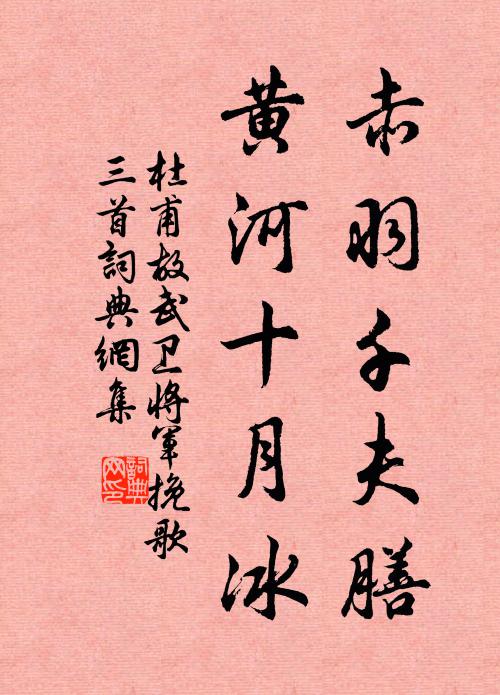 赤羽千夫膳
黄河十月冰
杜甫故武卫將軍挽歌
三首詞典網集
詞典網印